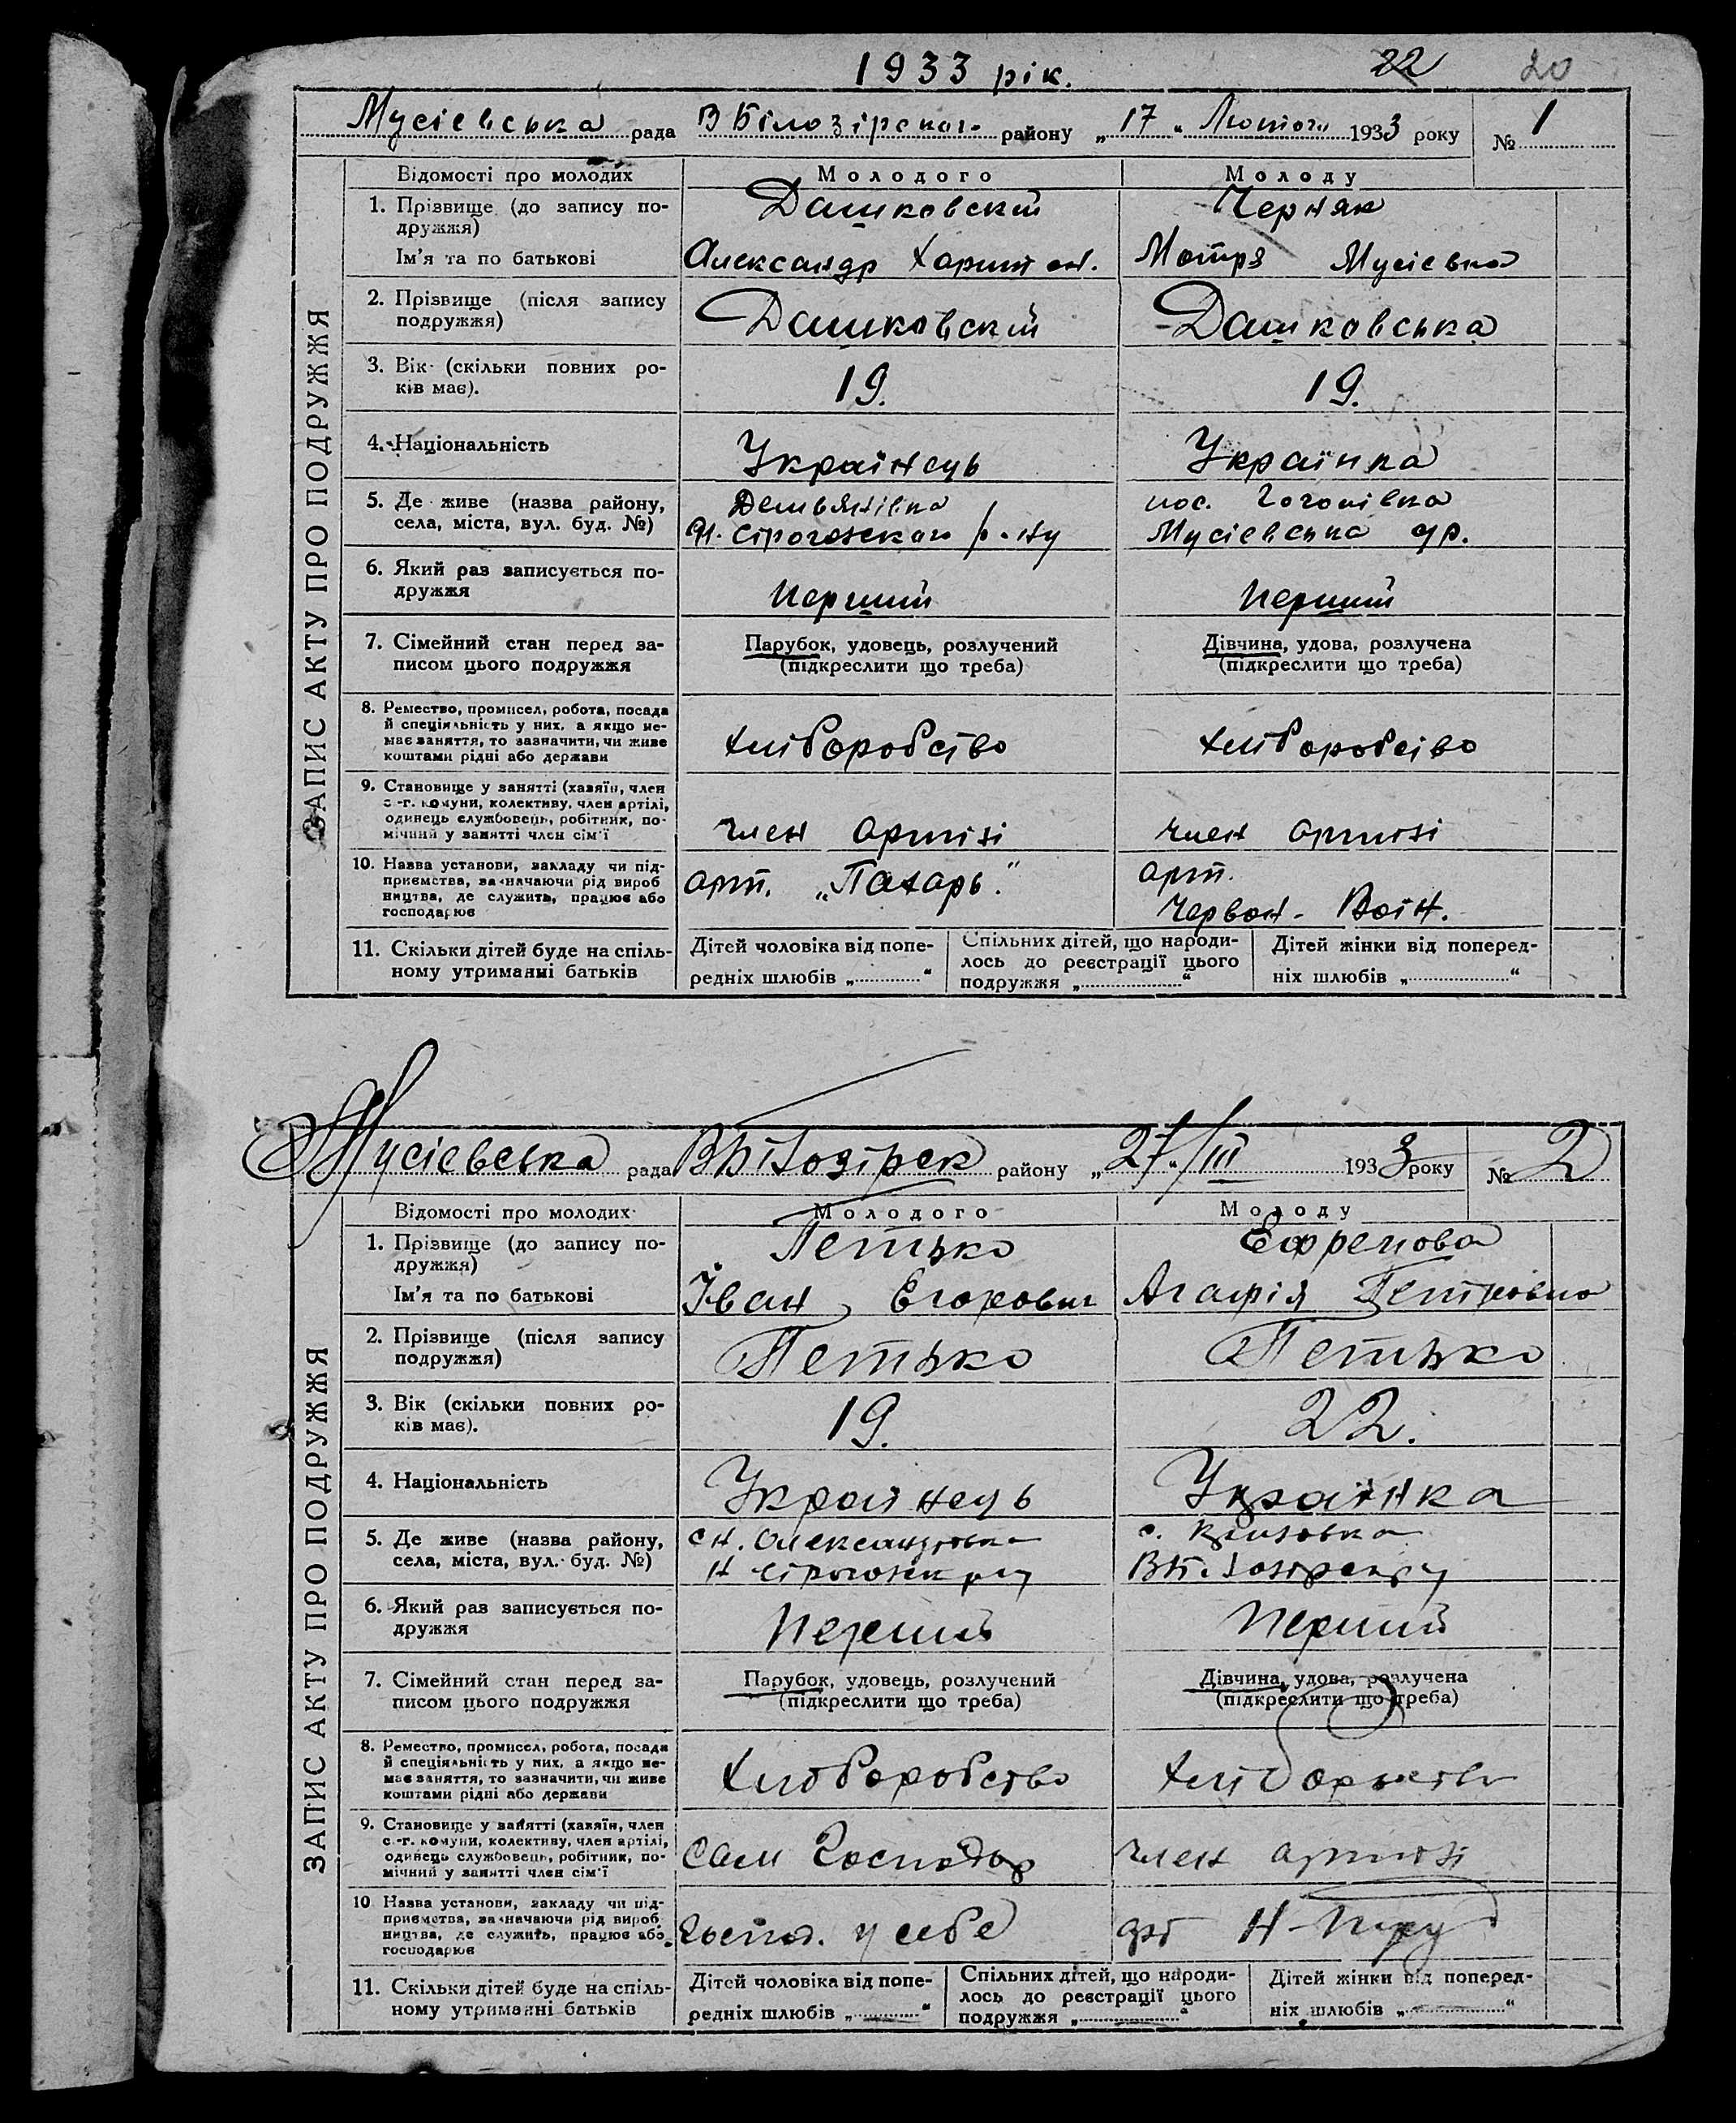 1933 рік. 22 20
Мусієвська рада В Білозірског. району „17“ Лютого 1933 року № 1
ЗАПИС АКТУ ПРО ПОДРУЖЖЯ
Відомості про молодих Молодого Молоду
1. Прізвище (до запису по- Дашковский Черняк
дружжя)
Ім'я та по батькові Александр Харитон. Мотря Мусієвна
2. Прізвище (після запису Дашковский Дашковська
подружжя)
3. Вік (скільки повних ро- 19. 19.
ків має).
4. Національність Українець Українка
5. Де живе (назва району, Демьянівка пос.
села, міста, вул. буд. №) Н. Сірогозского р-ну Мусієвська
6. Який раз записується по- перший перший
дружжя
7. Сімейний стан перед за- Парубок, удовець, розлучений Дівчина, удова, розлучена
писом цього подружжя (підкреслити що треба) (підкреслити що треба)
8. Ремество, промисел, робота, посада
й спеціяльність у них, а якщо не-
має заняття, то зазначити, чи живе хліборобство хліборобство
коштами рідні або держави
9. Становище у занятті (хазяїн, член
с.-г. комуни, колективу, член артілі,
одинець службовець, робітник, по- член артілі член артілі
мічний у занятті член сім'ї
10. Назва установи, закладу чи під- арт. „Пахарь.“ арт.
приємства, зазначаючи рід вироб
ництва, де служить, працює або Червон. Воїн.
господарює
11. Скільки дітей буде на спіль- Дітей чоловіка від попе- Спільних дітей, що народи- Дітей жінки від поперед-
ному утриманні батьків редніх шлюбів „ “ лось до реєстрації цього ніх шлюбів „ “
подружжя „ “
Мусієвська рада ВБілозірск району „27“/III 1933 року № 2
ЗАПИС АКТУ ПРО ПОДРУЖЖЯ
Відомості про молодих Молодого Молоду
1. Прізвище (до запису по- Петько Ефремова
дружжя)
Ім'я та по батькові Іван Егорович Агафія Петровна
2. Прізвище (після запису Петько Петько
подружжя)
3. Вік (скільки повних ро- 19. 22.
ків має).
4. Національність Українець Українка
5. Де живе (назва району, Олександровка с.
села, міста, вул. буд. №) Н Сірогозск
6. Який раз записується по- перший перший
дружжя
7. Сімейний стан перед за- Парубок, удовець, розлучений Дівчина, удова, розлучена
писом цього подружжя (підкреслити що треба) (підкреслити що треба)
8. Ремество, промисел, робота, посада
й спеціяльність у них, а якщо не-
має заняття, то зазначити, чи живе хліборобство хліборобство
коштами рідні або держави
9. Становище у занятті (хазяїн, член
с.-г. комуни, колективу, член артілі,
одинець службовець, робітник, по- Сам Господар член артілі
мічний у занятті член сім'ї
10 Назва установи, закладу чи під-
приємства, зазначаючи рід вироб
ництва, де служить, працює або у себе Н-Труд
господарює
11. Скільки дітей буде на спіль- Дітей чоловіка від попе- Спільних дітей, що народи- Дітей жінки від поперед-
ному утриманні батьків редніх шлюбів „ “ лось до реєстрації цього ніх шлюбів „ “
подружжя „ “